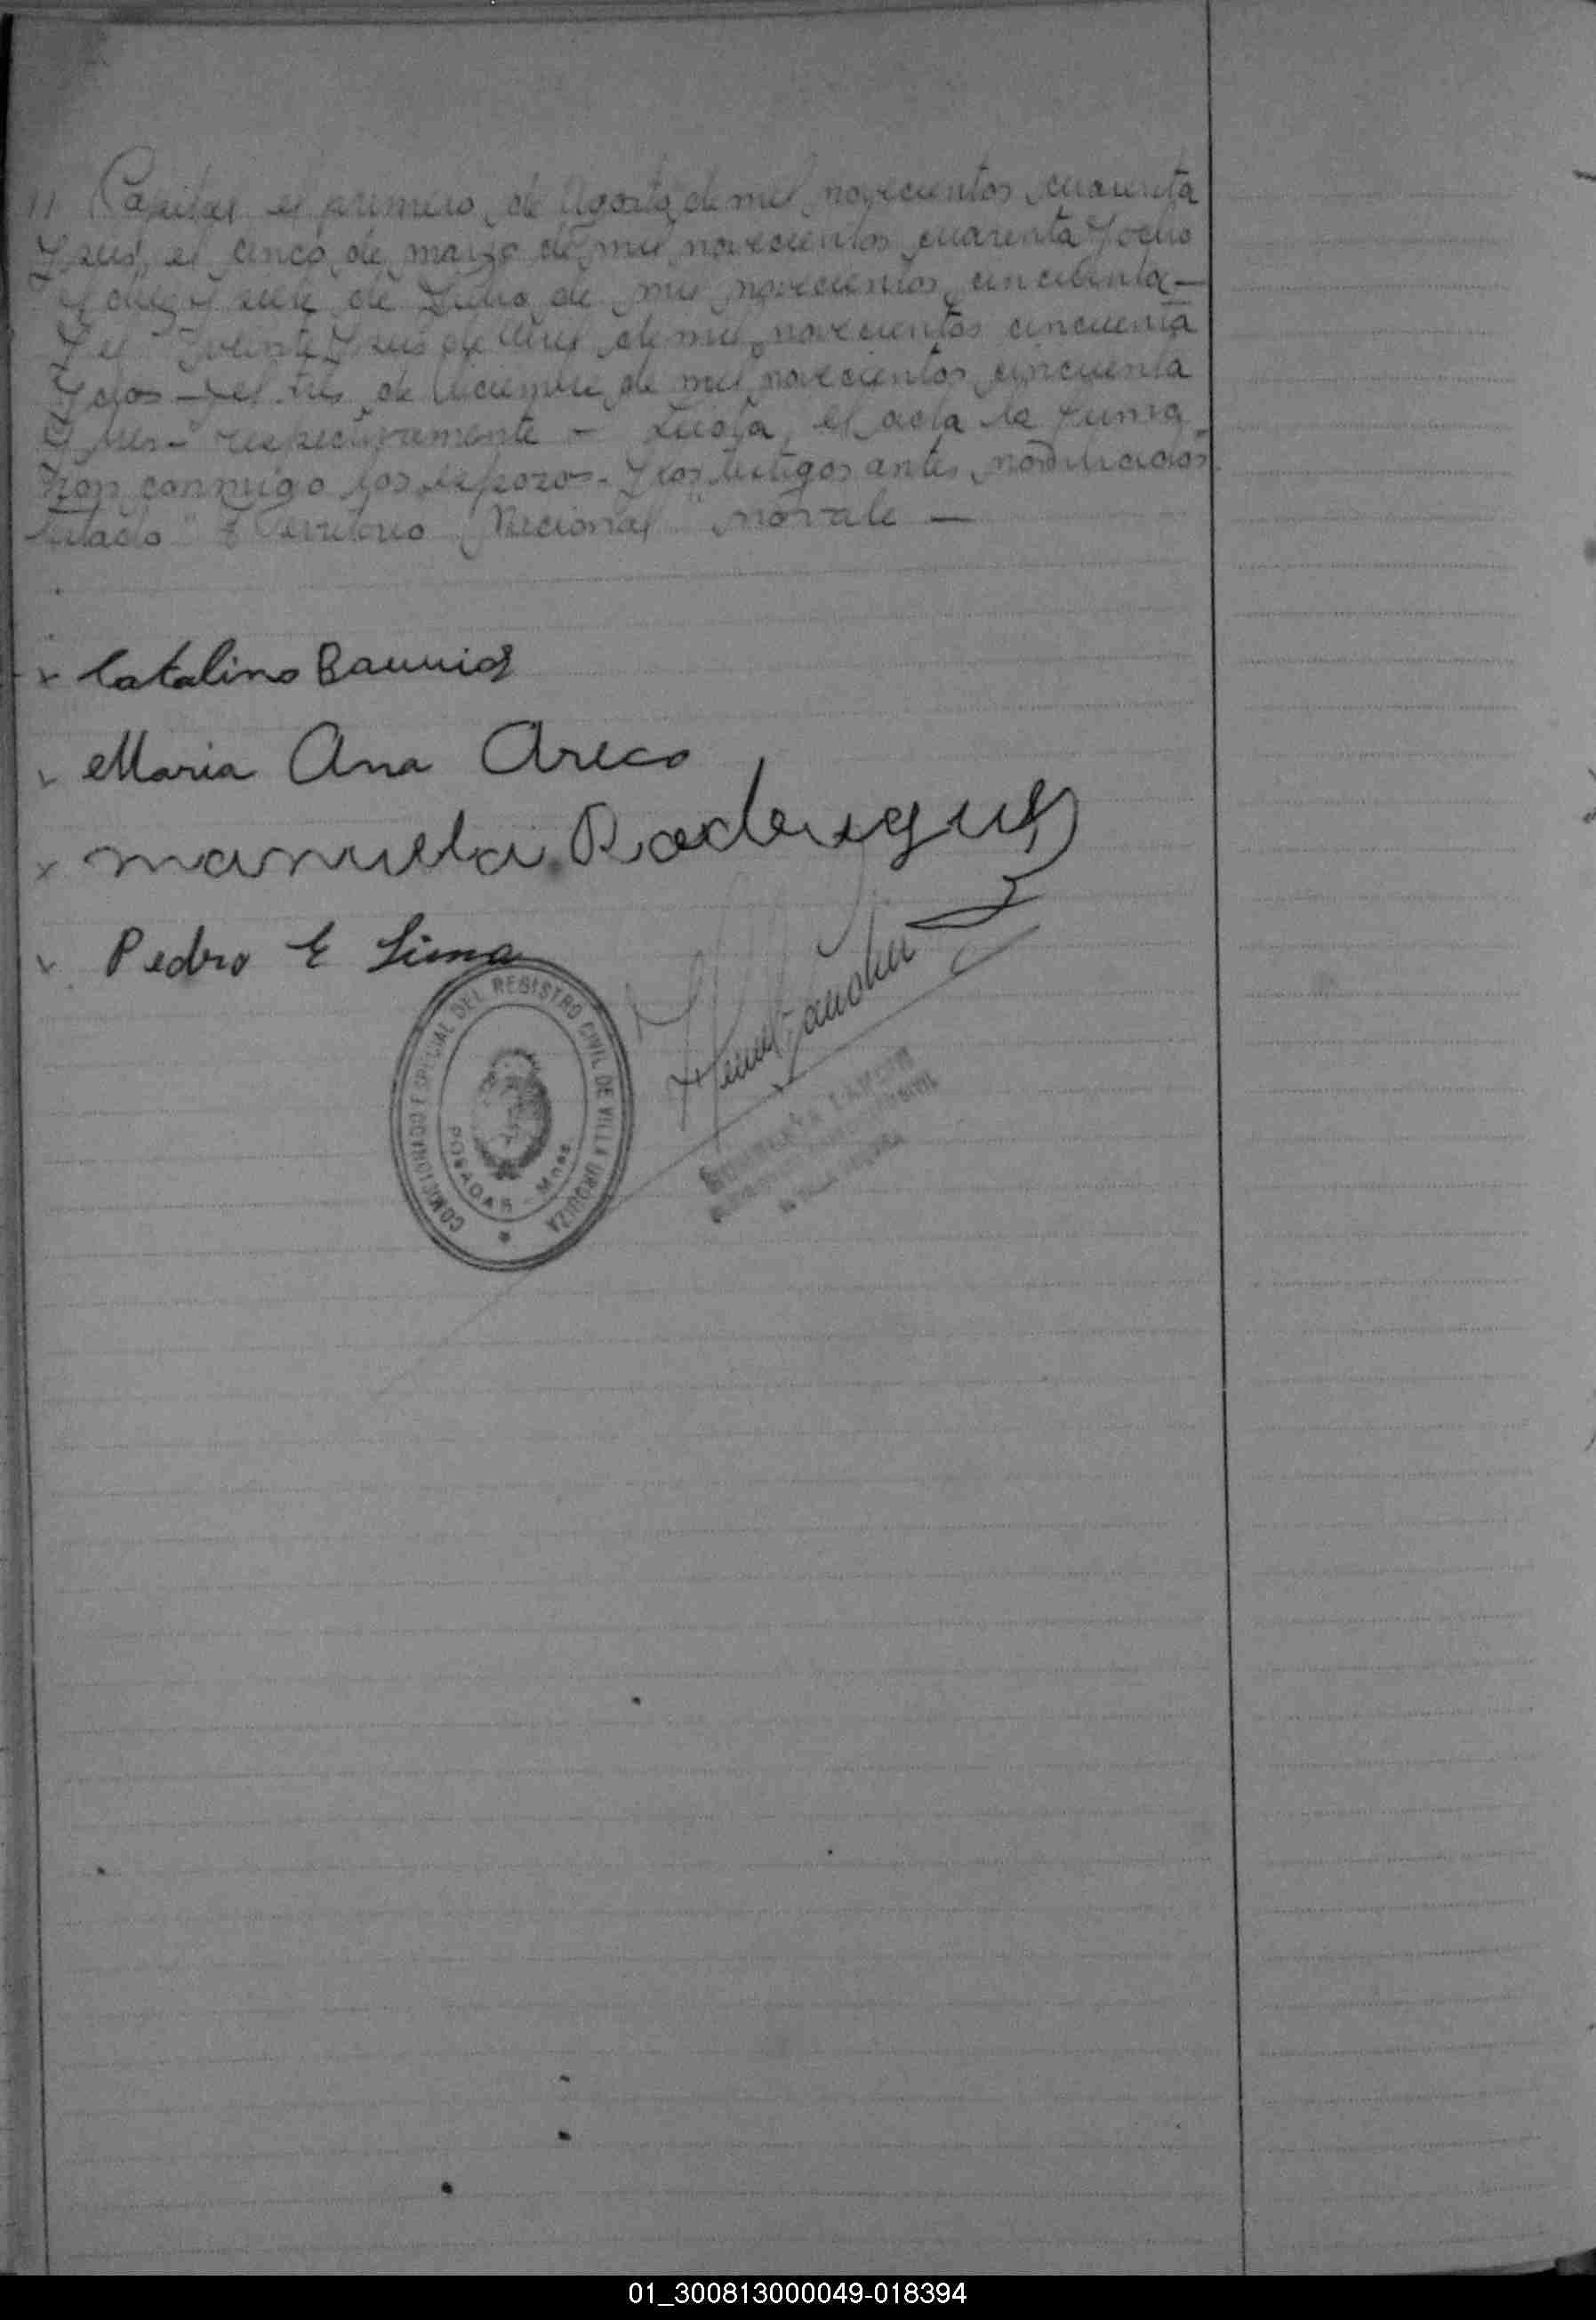 " Capital el primero de Agosto de mil novecientos cuarenta
y seis, el cinco de marzo de mil novecientos cuarenta y ocho
el diez y siete de Julio de mil novecientos cincuenta —
y el veinte y seis de de mil novecientos cincuenta
y dos — y el tres de Diciembre de mil novecientos cincuenta
y tres — respectivamente — Leida el acta la firma
ron conmigo los esposos y los testigos antes nombrados
testado " Territorio Nacional " no vale —
x Catalino
Maria Ana Areco
x manuela Rodriguez
Pedro E Lima
COMISIONADO ESPECIAL DEL REGISTRO CIVIL DE VILLA URQUIZA
POSADAS - Mnes
01_300813000049-018394